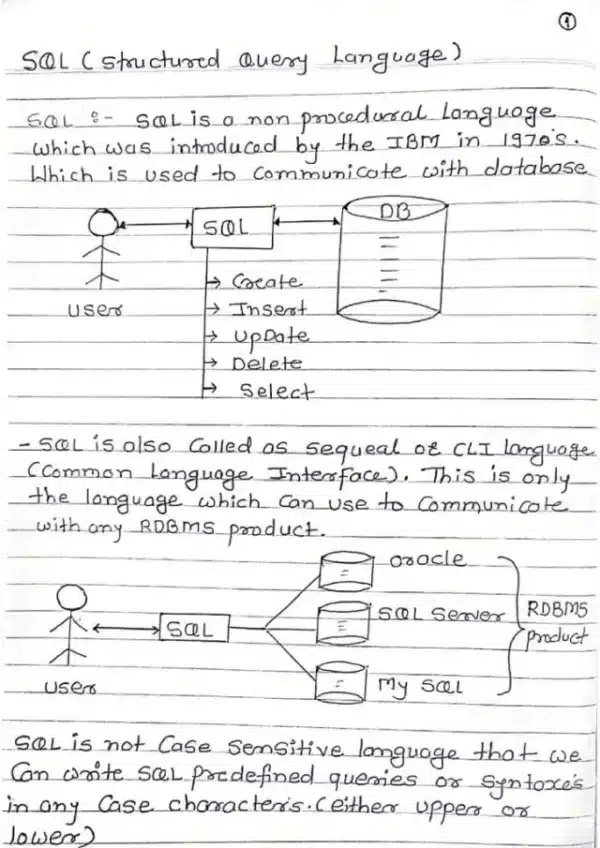 1
SQL (Structured Query Language)
SQL :- SQL is a non procedural language
which was introduced by the IBM in 1970's.
Which is used to communicate with database
User
SQL
DB
→ Create
→ Insert
→ UpDate
→ Delete
→ Select
- SQL is also Called as sequeal or CLI language
(Common Language Interface). This is only
the language which can use to Communicate
with any RDBMS product.
User
SQL
Oracle
SQL Server
My SQL
RDBMS
product
SQL is not Case Sensitive language that we
Can write SQL predefined queries or syntaxe's
in any Case characters. (either upper or
lower)